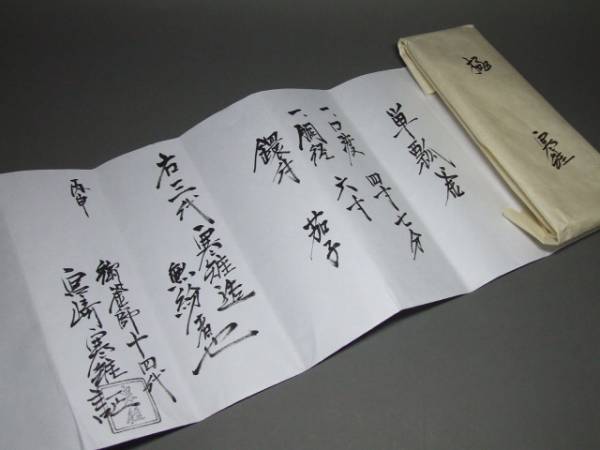 極
寒雉
単瓢釜
四寸七分
一、胴径 六寸
鐶付 茄子
右三代寒雉造
無紛者也
丙申
御釜師十四代
宮崎寒雉証